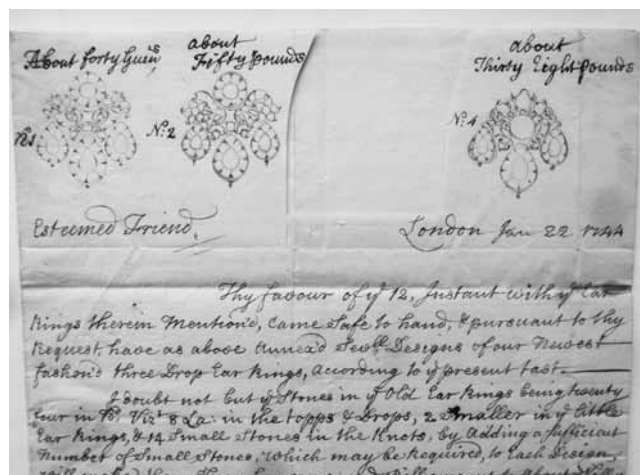 About forty Guins
about
Fifty pounds
about
Thirty Eight pounds
No. 2
No. 4
Esteemed Friend,
London Jan 22 1744
Thy favour of ye 12, Instant with ye Ear
Rings therein Mention'd, came Safe to hand, & pursuant to thy
Request, have as above Annex'd Sevll Designs of our Newest
fashion'd three Drop Ear Rings, according to ye present tast.
I doubt not but ye Stones in ye Old Ear Rings being twenty
four in No. Vizt 8 La: in the topps & Drops, 2 Smaller in ye little
Ear Rings, & 14 Small Stones in the Knots, by Adding a sufficient
Number of Small Stones, which may be Required, to Each Design,